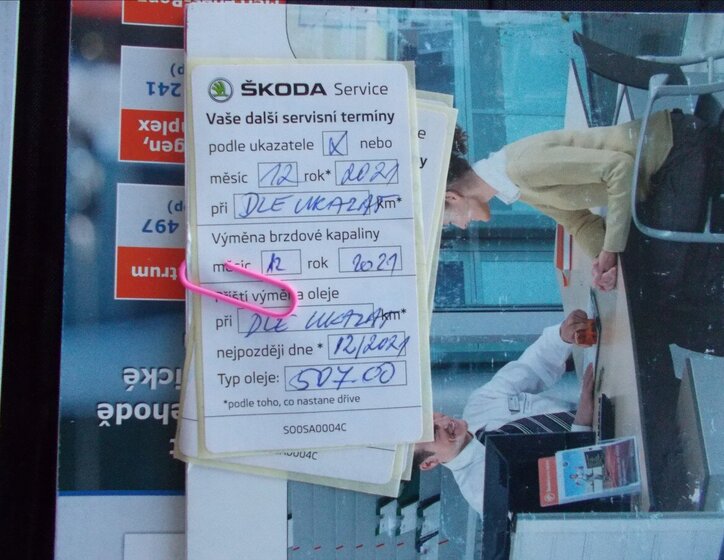 ŠKODA Service
Vaše další servisní termíny
podle ukazatele x nebo
měsíc 12 rok* 2021
při DLE UKAZAT km*
Výměna brzdové kapaliny
měsíc 12 rok 2021
Příští výměna oleje
při DLE UKAZAT km*
nejpozději dne * 12/2021
Typ oleje: 507.00
*podle toho, co nastane dříve
S00SA0004C
A0004C
241
mplex
gen,
497
ntrum
ické
ehodě